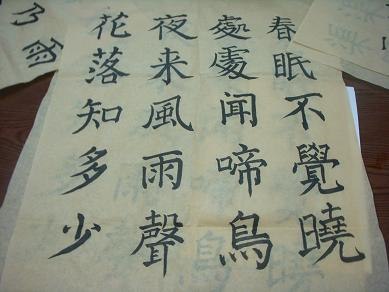 春眠不覺曉
處處闻啼鳥
夜来風雨聲
花落知多少